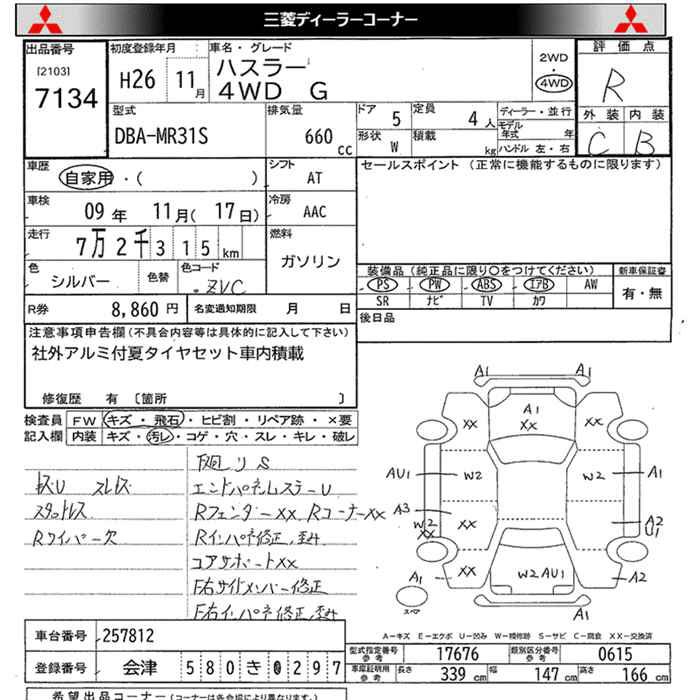 三菱ディーラーコーナー
出品番号
[2103]
7134
初度登録年月
H26 11月
車名・グレード
ハスラー
4WD G
2WD
・
4WD
評価点
R
外装 内装
C B
型式
DBA-MR31S
排気量
660 cc
ドア 5
定員 4人
形状 W
積載 kg
ディーラー・並行
モデル年式 年
ハンドル 左・右
車歴
自家用・( )
シフト
AT
車検
09年 11月(17日)
冷房
AAC
走行
7万2千315km
燃料
ガソリン
色
シルバー
色替
色コード
ZVC
R券 8,860円
名変通知期限 月 日
セールスポイント (正常に機能するものに限ります)
装備品(純正品に限り〇をつけてください)
PS PW ABS エアB AW
SR ナビ TV カワ
新車保証書
有・無
後日品
注意事項申告欄(不具合内容等は具体的に記入して下さい)
社外アルミ付夏タイヤセット車内積載
修復歴 有〔箇所 〕
検査員記入欄
FW キズ・飛石・ヒビ割・リペア跡・×要
内装 キズ・汚レ・コゲ・穴・スレ・キレ・破レ
下廻りS
キズU スレキズ
エンドパネルステーU
スタッドレス
Rフェンダーxx. Rコーナーxx
Rワイパー欠
Rインパネ修正,歪み
コアサポートxx
F右サイドメンバー修正
F右インパネ修正,歪み
A1 A1
A1
XX XX XX
AU1 W2 W2 A1
A3
W2
XX
XX
A2
U1
A1 XX W2 AU1 A2
スペア
A-キズ E-エクボ U-凹み W-補修跡 S-サビ C-腐食 XX-交換済
車台番号 257812
登録番号 会津 580 き 0297
型式指定番号
参考
17676
類別区分番号
参考
0615
車庫証明用
参考
長さ 339 cm
幅 147 cm
高さ 166 cm
希望出品コーナー